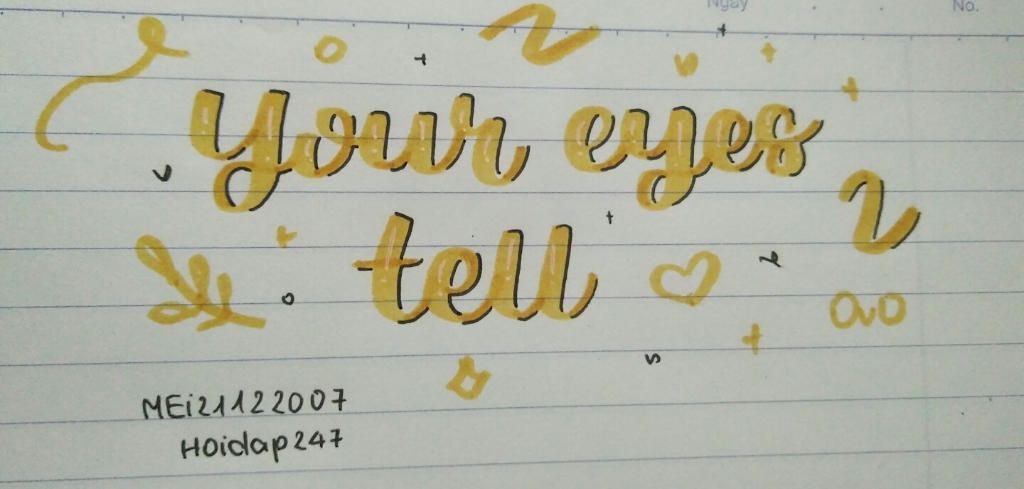 Ngày No.
your eyes
tell
MEi21122007
Hoidap247